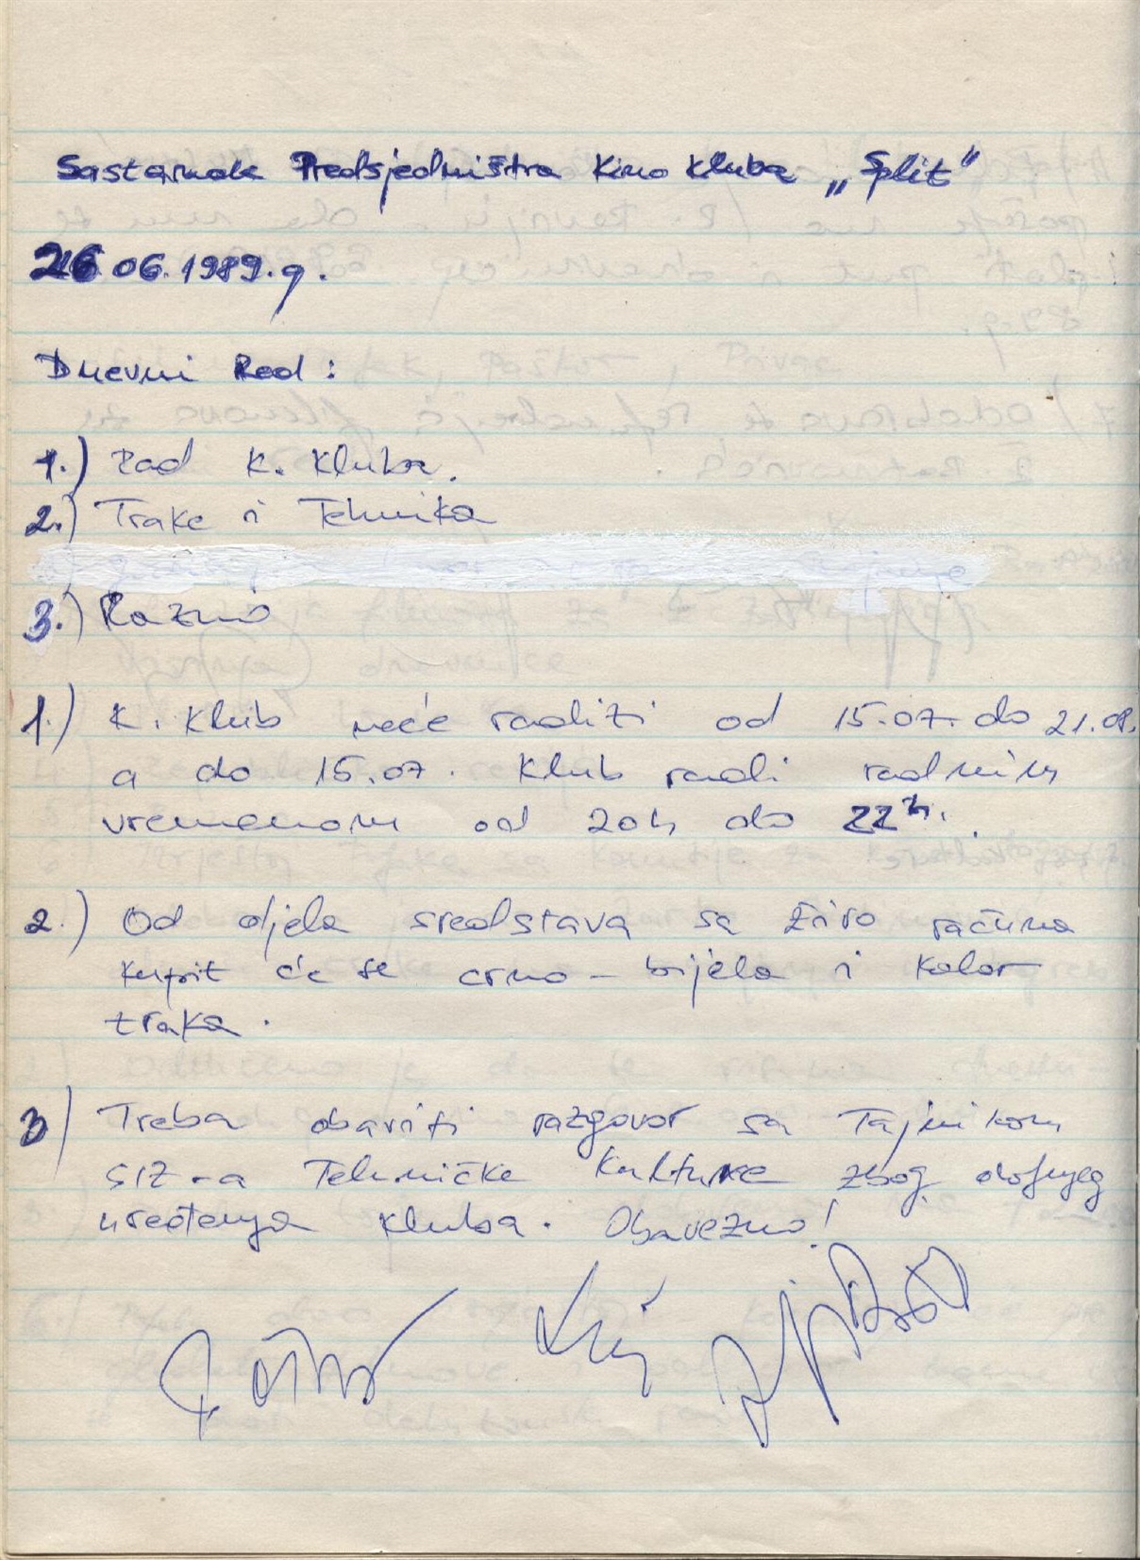 Sastanak Predsjedništva Kino Kluba „Split"
26 06. 1989. g.
Dnevni Red :
1.) Rad K. Kluba.
2.) Trake i Tehnika
3.) Razno
1.) K. Klub neće raditi od 15.07. do 21.08.
a do 15.07. Klub radi radnim
vremenom od 20h do 22h.
2.) Od djela sredstava sa žiro računa
kupit će se crno - bijela i kolor
traka.
3) Treba obaviti razgovor sa Tajnikom
SIZ-a Tehničke Kulture zbog
uređenja kluba. Obavezno!